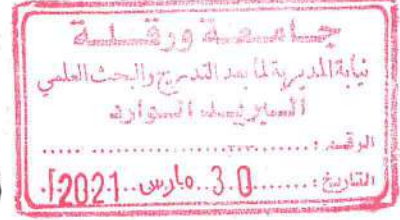 جــامــعــة ورقــلــة
نيابة المديرية لما بعد التدرج والبحث العلمي
البريد الوارد
الرقم : ........................
التاريخ : ......3.0..مارس..2021